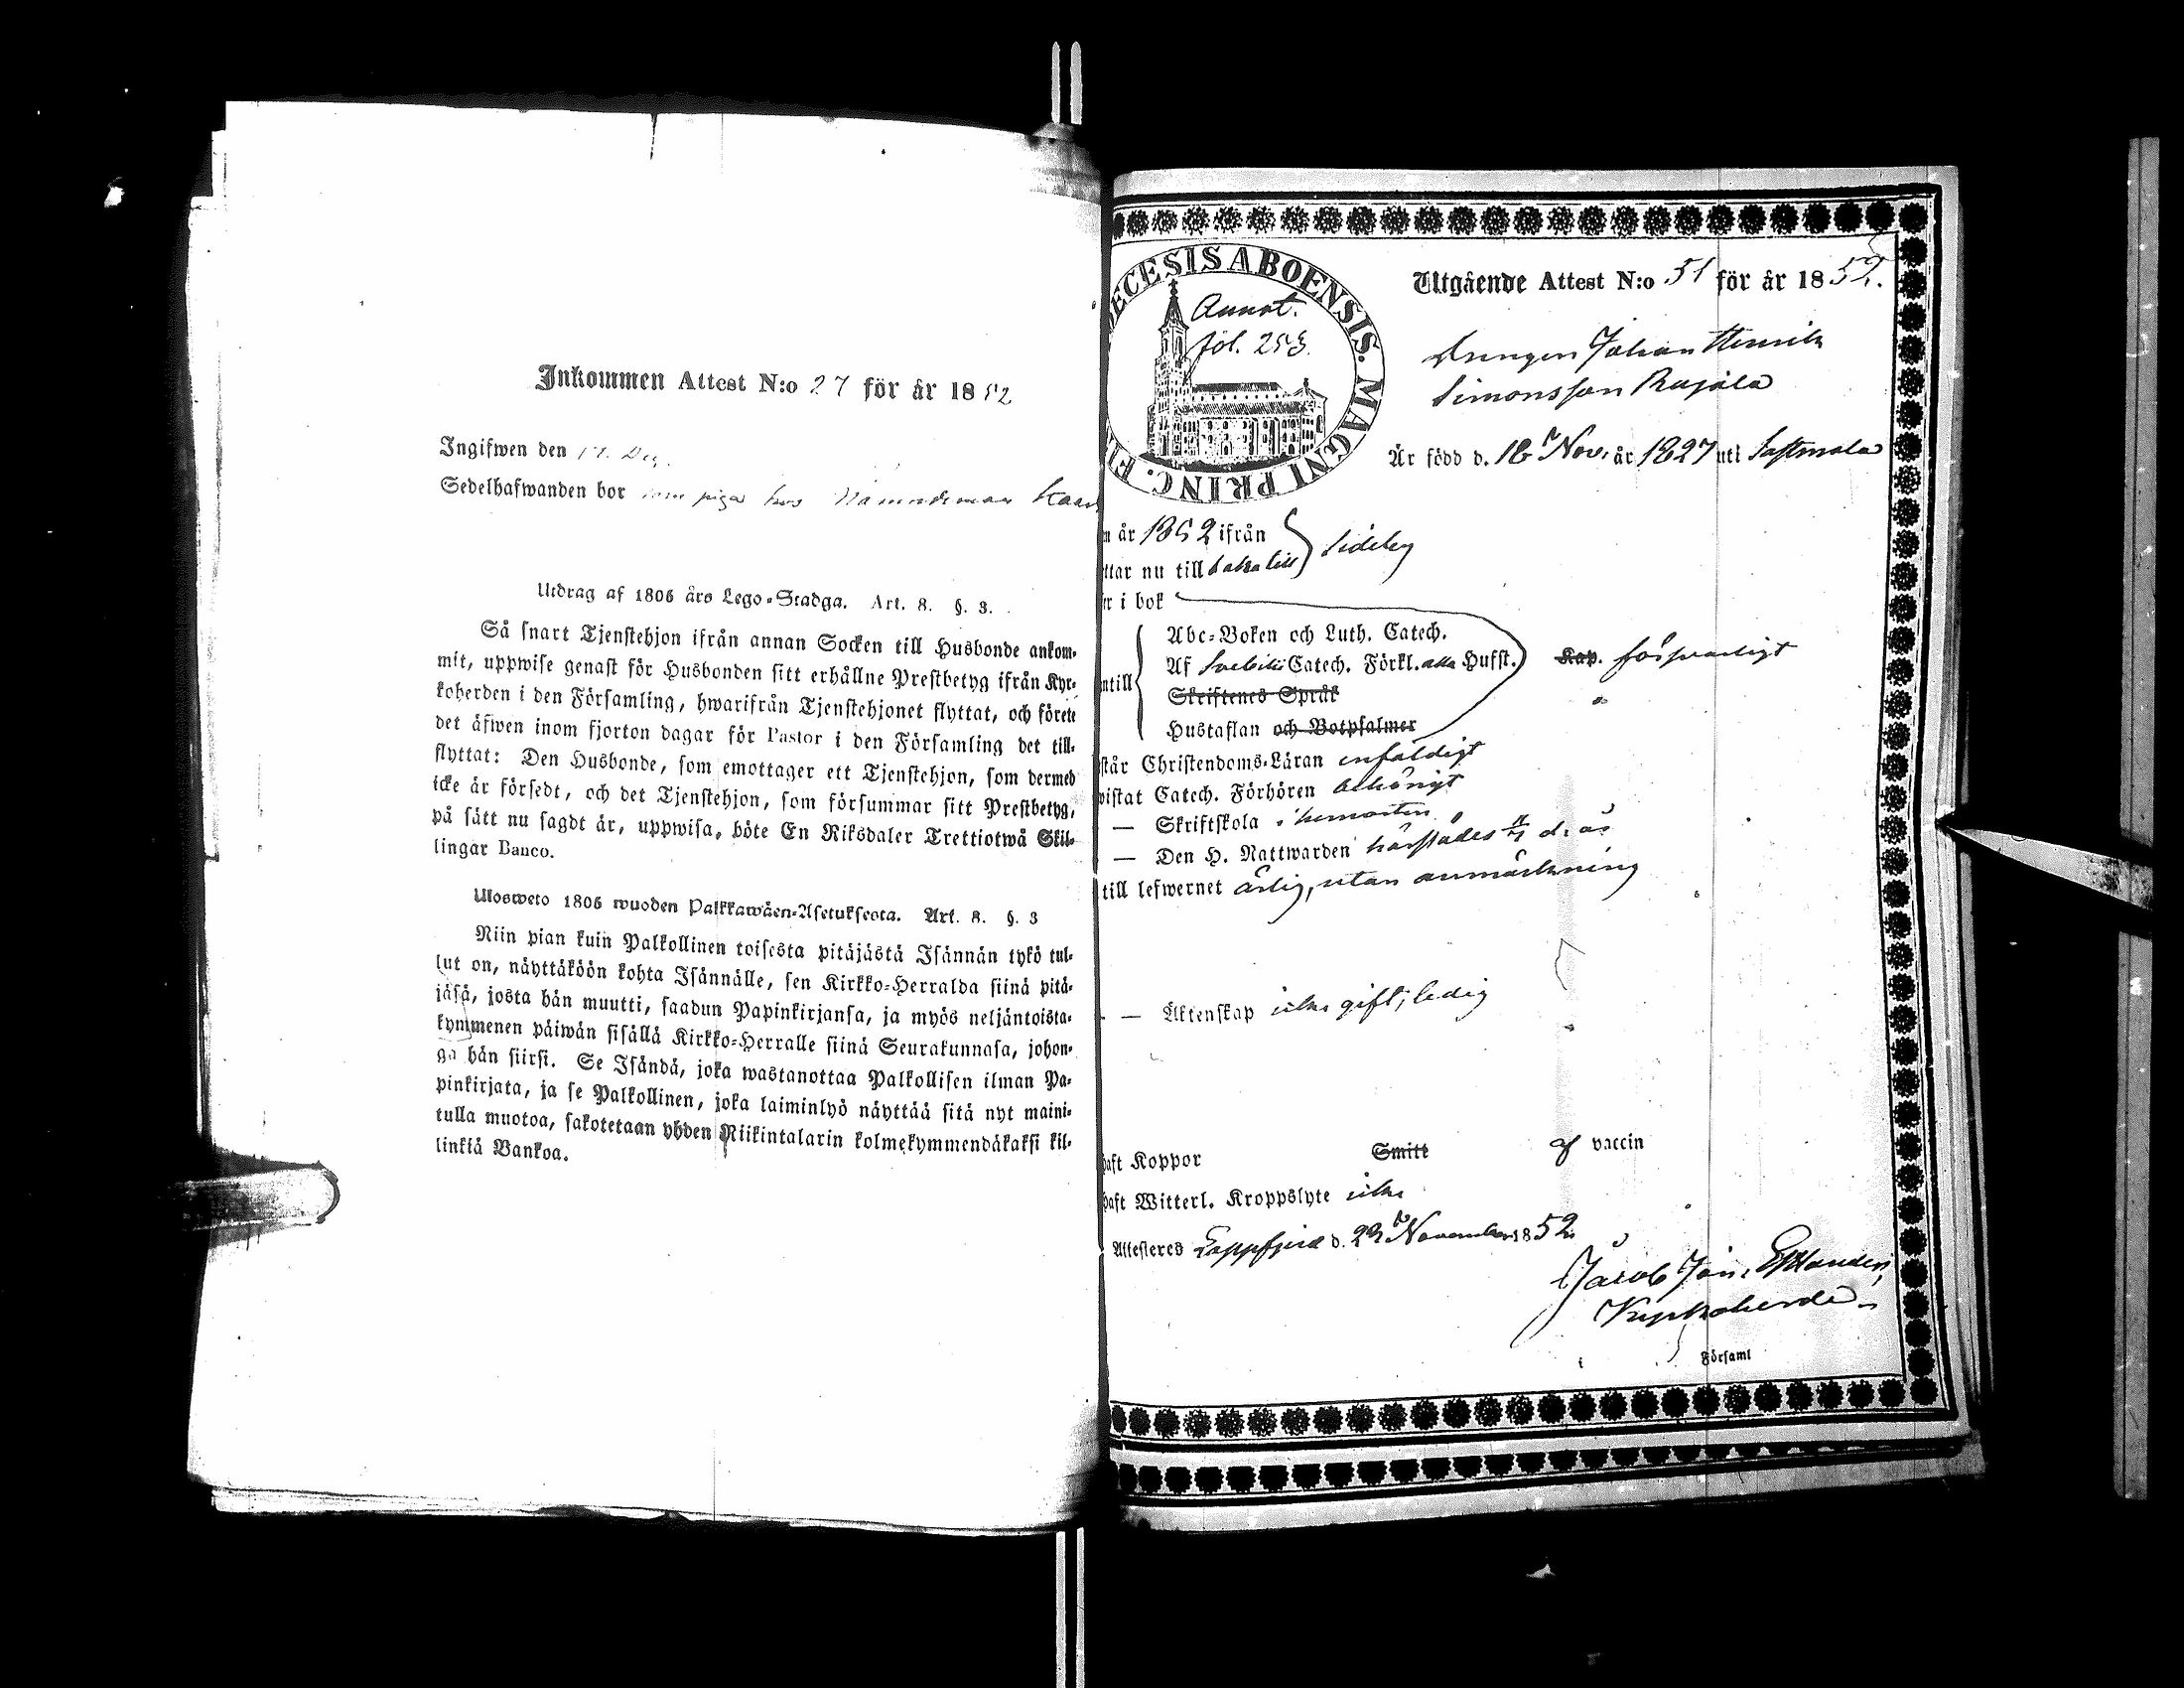 Inkommen Attest N:o 27 för år 1852
Ingifwen den 17. Dec.
Sedelhafwanden bor som piga hos Nämndeman
Utdrag af 1806 års Lego-Stadga. Art. 8. §. 3.
Så snart Tjenstehjon ifrån annan Socken till Husbonde ankom-
mit, uppwise genast för Husbonden sitt erhållne Prestbetyg ifrån Kyr-
koherden i den Församling, hwarifrån Tjenstehjonet flyttat, och förete
det äfwen inom fjorton dagar för Pastor i den Församling det till-
flyttat: Den Husbonde, som emottager ett Tjenstehjon, som dermed
icke är försedt, och det Tjenstehjon, som försummar sitt Prestbetyg,
på sätt nu sagdt är, uppwisa, böte En Riksdaler Trettiotwå Skil-
lingar Banco.
Ulosweto 1806 wuoden Palkkawäen-Asetuksesta. Art. 8. §. 3
Niin pian kuin Palkollinen toisesta pitäjästä Isännän tykö tul-
lut on, näyttäköön kohta Isännälle, sen Kirkko-Herralda siinä pitä-
jäsä, josta hän muutti, saadun Papinkirjansa, ja myös neljäntoista-
kymmenen päiwän sisällä Kirkko-Herralle siinä Seurakunnasa, johon-
ga hän siirsi. Se Isändä, joka wastanottaa Palkollisen ilman Pa-
pinkirjata, ja se Palkollinen, joka laiminlyö näyttää sitä nyt maini-
tulla muotoa, sakotetaan yhden Riikintalarin kolmekymmendäkaksi kil-
linkiä Bankoa.
ECESIS ABOENSIS. MAGNI PRINC. FI
Annot.
fol. 253.
Utgående Attest N:o 51 för år 1852.
Drengen Johan Henrik
Simonsson Rajala
Är född d. 18 Nov. år 1827 uti Sastmola
m år 1852 ifrån
ttar nu till tillbaka Sideby
er i bok
Abc-Boken och Luth. Catech.
Af Svebilii Catech. Förkl. alla Hufst. Kap. försvarligt
ntill
Skriftenes Språk
Hustaflan och Botpsalmer
står Christendoms-Läran enfaldigt
wistat Catech. Förhören behörigt
— Skriftskola i hemorten
— Den H. Nattwarden härstädes d. år
till lefwernet ärlig, utan anmärkning
— Äktenskap icke gift; ledig
haft Koppor Smitt af vaccin
haft Witterl. Kroppslyte icke
Attesteres Lappfjerd d. 23 November 1852
Jacob Joh.
Kyrkoherde
i Församl